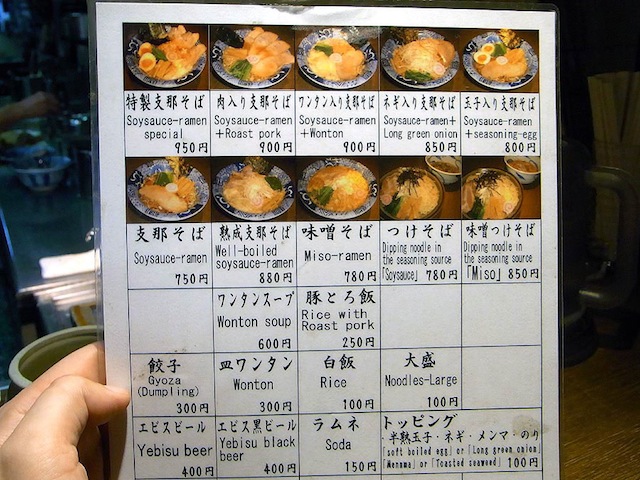 特製支那そば
Soysauce-ramen
special
950円
肉入り支那そば
Soysauce-ramen
+Roast pork
900円
ワンタン入り支那そば
Soysauce-ramen
+Wonton
900円
ネギ入り支那そば
Soysauce-ramen+
Long green onion
850円
玉子入り支那そば
Soysauce-ramen
+seasoning-egg
800円
支那そば
Soysauce-ramen
750円
熟成支那そば
Well-boiled
soysauce-ramen
880円
味噌そば
Miso-ramen
780円
つけそば
Dipping noodle in
the seasoning source
「Soysauce」 780円
味噌つけそば
Dipping noodle in
the seasoning source
「Miso」 850円
ワンタンスープ
Wonton soup
600円
豚とろ飯
Rice with
Roast pork
250円
餃子
Gyoza
(Dumpling)
300円
皿ワンタン
Wonton
300円
白飯
Rice
100円
大盛
Noodles-Large
100円
エビスビール
Yebisu beer
400円
エビス黒ビール
Yebisu black
beer
400円
ラムネ
Soda
150円
トッピング
・半熟玉子・ネギ・メンマ・のり
「soft boiled egg」or「Long green onion」
「Menma」or「Toasted seaweed」 100円